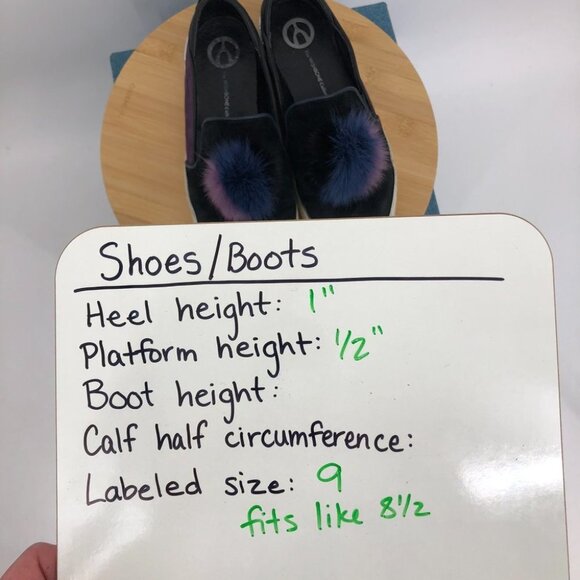 Shoes/Boots
Heel height: 1"
Platform height: 1/2"
Boot height:
Calf half circumference:
Labeled size: 9
fits like 8 1/2